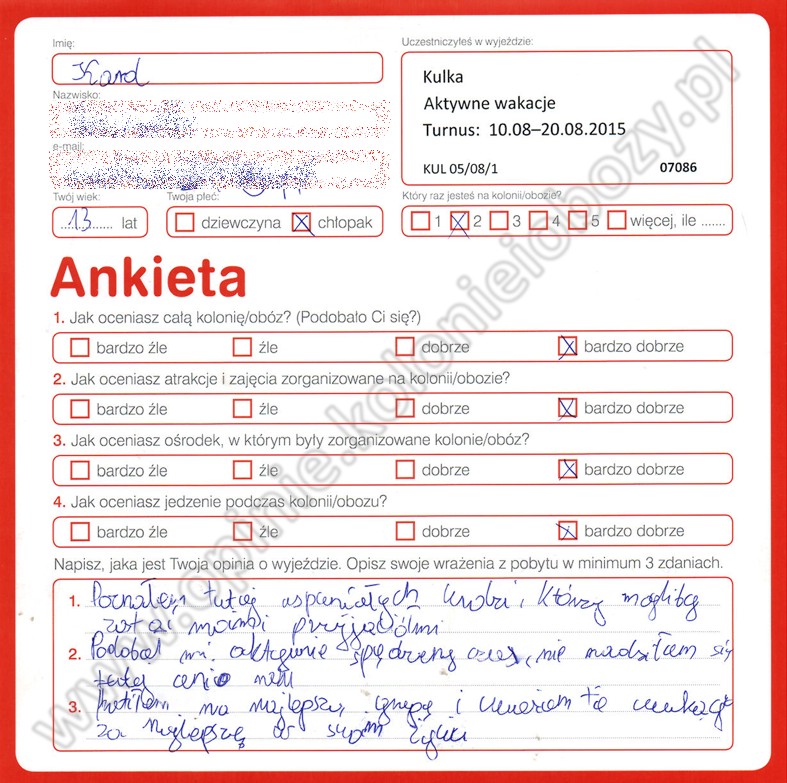 Imię:
Karol
Nazwisko:
e-mail:
Twój wiek:
13 lat
Twoja płeć:
dziewczyna chłopak
Uczestniczyłeś w wyjeździe:
Kulka
Aktywne wakacje
Turnus: 10.08–20.08.2015
KUL 05/08/1 07086
Który raz jesteś na kolonii/obozie?
1 2 3 4 5 więcej, ile .......
Ankieta
1. Jak oceniasz całą kolonię/obóz? (Podobało Ci się?)
bardzo źle źle dobrze bardzo dobrze
2. Jak oceniasz atrakcje i zajęcia zorganizowane na kolonii/obozie?
bardzo źle źle dobrze bardzo dobrze
3. Jak oceniasz ośrodek, w którym były zorganizowane kolonie/obóz?
bardzo źle źle dobrze bardzo dobrze
4. Jak oceniasz jedzenie podczas kolonii/obozu?
bardzo źle źle dobrze bardzo dobrze
Napisz, jaka jest Twoja opinia o wyjeździe. Opisz swoje wrażenia z pobytu w minimum 3 zdaniach.
1. Poznałem tutaj wspaniałych ludzi, którzy mogliby
zostać moimi przyjaciółmi
2. Podobał mi aktywnie spędzony czas, nie nudziłem się
tutaj ani
3. trafiłem na najlepszą grupę i uważam te wakacje
za najlepsze w swoim życiu
www.opinie.kolonieiobozy.pl